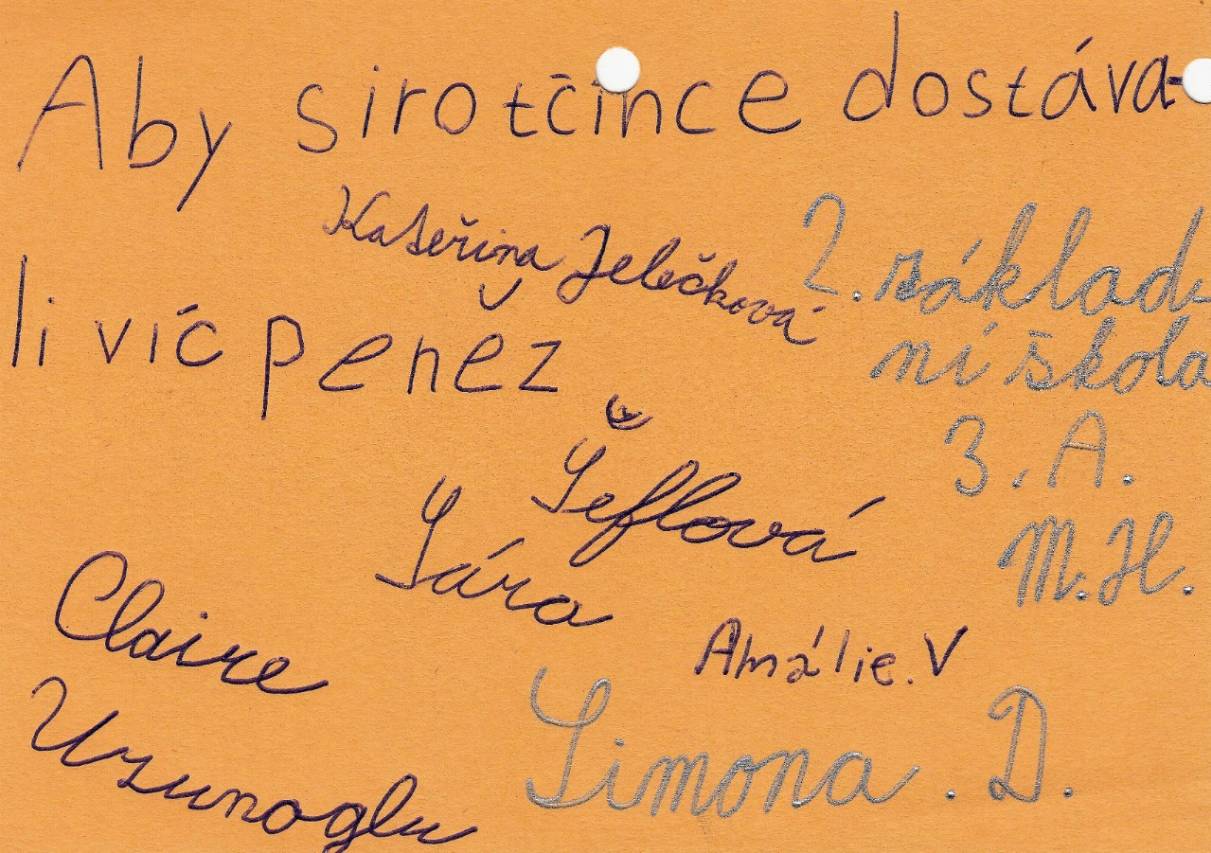 Aby sirotčince dostáva-
li víc peněz
Kateřina Jelečková
2. základ-
ní škola
3. A.
M. H.
Šeflová
Sára
Amálie. V
Claire
Uzunoglu
Simona. D.